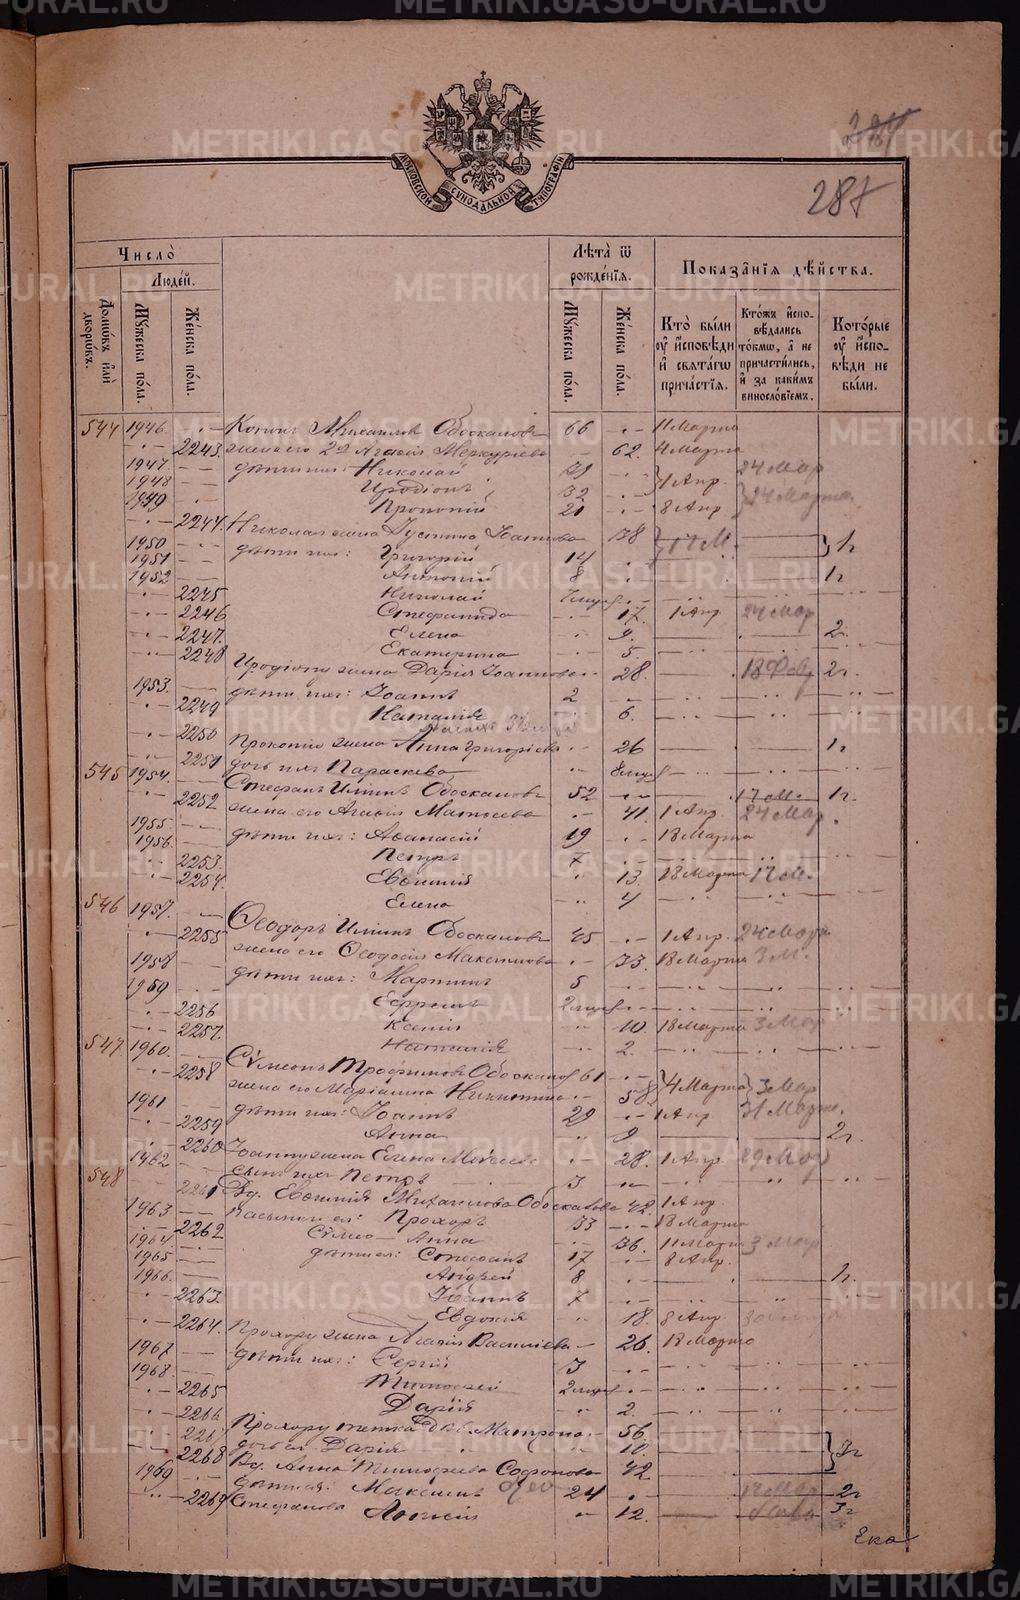 METRIKI.GASO-URAL.RU
Московской Сѵнодальной Типографіи
287
Число̀
Людей.
Домѡвъ или дворѡвъ.
Мꙋжеска пола.
Женска пола.
Лѣта ѿ рожденїя.
Мꙋжеска пола.
Женска пола.
Показанїя дѣйства.
Кто̀ были оу исповѣди и свѧтагѡ причастїя.
Ктожъ исповѣдались токмѡ, а не причастились, и за какимъ винословїемъ.
Которые оу исповѣди не были.
544 1946. Михаиловъ Обоскаловъ 66 11 Марта
2243. жена его 2я Агафія Меркуріева 62. 4 Марта
1947 дѣти ихъ: Николай 39 24 Мар
1948 Иродіонъ 32 1 Апр.
1949 Прокопій 21 8 Апр 24 Марта.
2244. Николая жена Іустина 38
1950 дѣти ихъ: Григорій 14 1 г
1951 Антоній 8
1952 Николай
2245 Стефанида 17. 1 Апр 24 Мар
2246 Елена 9. 2 г.
2247. Екатерина 5
2248 Иродіону жена Дарія Іоаннова 28. 18 Фев 2 г
1953. дѣти ихъ: Іоаннъ 2
2249 Наталія 6.
2250 Прокопію жена Анна Григоріева 26 1 г
2251 дочь ихъ Параскева
545 1954. Стефанъ Обоскаловъ 52 17 М. 1 г.
2252 жена его Агафія Матѳеева 41. 1 Апр 24 Мар.
1955 дѣти ихъ: Аѳанасій 19 18 Марта
1956. Петръ 7
2253. Евѳимія 13. 18 Марта 17 М.
2254. Елена 4
546 1957. Ѳеодоръ Обоскаловъ 45 1 Апр. 24 Мар
2255 жена его Ѳеодосія Максимова 33. 18 Марта 3 М.
1958 дѣти ихъ: Мартинъ 5
1959 Ефремъ
2256 Ксенія 10 18 Марта 3 Мар
2257. Наталія 2.
547 1960. Сѵмеонъ Трофимовъ Обоскаловъ 61 4 Марта 3 Мар
2258 жена его Маріамна Никитина 58
1961 дѣти ихъ: Іоаннъ 29 1 Апр 31 Марта.
2259 Анна 9 2 г.
2260 Іоанну жена Елена 28. 1 Апр 29 Мар
1962 сынъ ихъ Петръ 3
548 2261 Вд. Евѳимія Михаилова Обоскалова 42. 1 Апр
1963 пасынки ея: Прохоръ 33 18 Марта
2262 Анна 36. 11 Марта 3 Мар
1964 дѣти ея: Стефанъ 17 8 Апр.
1965 Андрей 8 1 г.
1966. Іоаннъ 7
2263 Евдокія 18. 8 Апр
2264. Прохору жена Агафія Василіева 26. 18 Марта
1967 дѣти ихъ: Сергій 3
1968. Тимоѳей
2265 Дарія 2.
2266 Прохору тетка Матрона 56
2267 дочь ея Дарія 10. 3 г
2268 Вд. Анна Тимофеева Софонова 42
1969 Максимъ 24 17 Мар 2 г
2269 Стефанова 12. 3 г
Ека